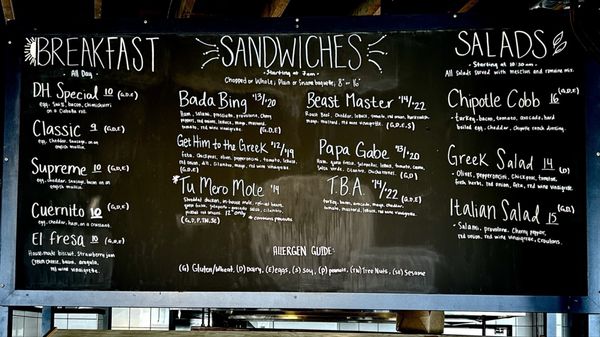 BREAKFAST
All Day
DH Special 10 (G,D,E)
egg, bacon, chimichurri
on a Ciabatta roll
Classic 9 (G,D,E)
egg, cheddar, sausage on an
english muffin
Supreme 10 (G,D,E)
egg, cheddar, bacon on an
english muffin
Cuernito 10 (G,D,E)
egg, cheddar, ham, on a croissant
El fresa 10 (G,D,E)
House-made biscuit, Strawberry jam
cream cheese, bacon, arugula,
red wine vinegrette
SANDWICHES
Starting at 7am
Chopped or Whole, Plain or Sesame baguete, 8" or 16"
Bada Bing 13/20
Ham, Salami, prosciutto, provolone, cherry
peppers, red onion, lettuce, mayo, mustard,
tomato, red wine vinegrette. (G,D,E)
Get Him to the Greek 12/19
Feta, Chickpeas, olives, pepperoncini, tomato, lettuce,
red onion, dill, cilantro, mayo, red wine vinegrette.
(G,D,E)
*Tu Mero Mole 14
Shredded chicken, in-house mole, refried beans,
queso fresco, jalapeño-avocado salsa, cilantro,
pickled red onions 12" only * contains peanuts
(G,D,P,TN,SE)
Beast Master 14/22
Roast Beef, Cheddar, lettuce, tomato, red onion, horseradish
mayo, mustard, red wine vinegrette.
(G,D,E,S)
Papa Gabe 13/20
Ham, queso fresco, jalapeños, lettuce, tomato, crema,
salsa verde, cilantro, chicharrones. (G,D)
TBA 14/22
Turkey, bacon, avocado, mayo, cheddar,
tomato, mustard, lettuce, red wine vinegrette.
(G,D,E)
ALLERGEN GUIDE:
(G) Gluten/Wheat, (D) Dairy, (E) eggs, (S) Soy, (P) peanuts, (TN) Tree Nuts, (SE) Sesame
SALADS
Starting at 10:30 am
All Salads served with mesclun and romaine mix.
Chipotle Cobb 16 (G,D,E)
- turkey, bacon, tomato, avocado, hard
boiled egg, cheddar, chipotle ranch dressing.
Greek Salad 14 (D)
- Olives, pepperoncini, chickpeas, tomatoes,
fresh herbs, red onion, feta, red wine vinegrette.
Italian Salad 15 (G,D)
- Salami, provolone, Cherry pepper,
red onion, red wine vinegrette, croutons.